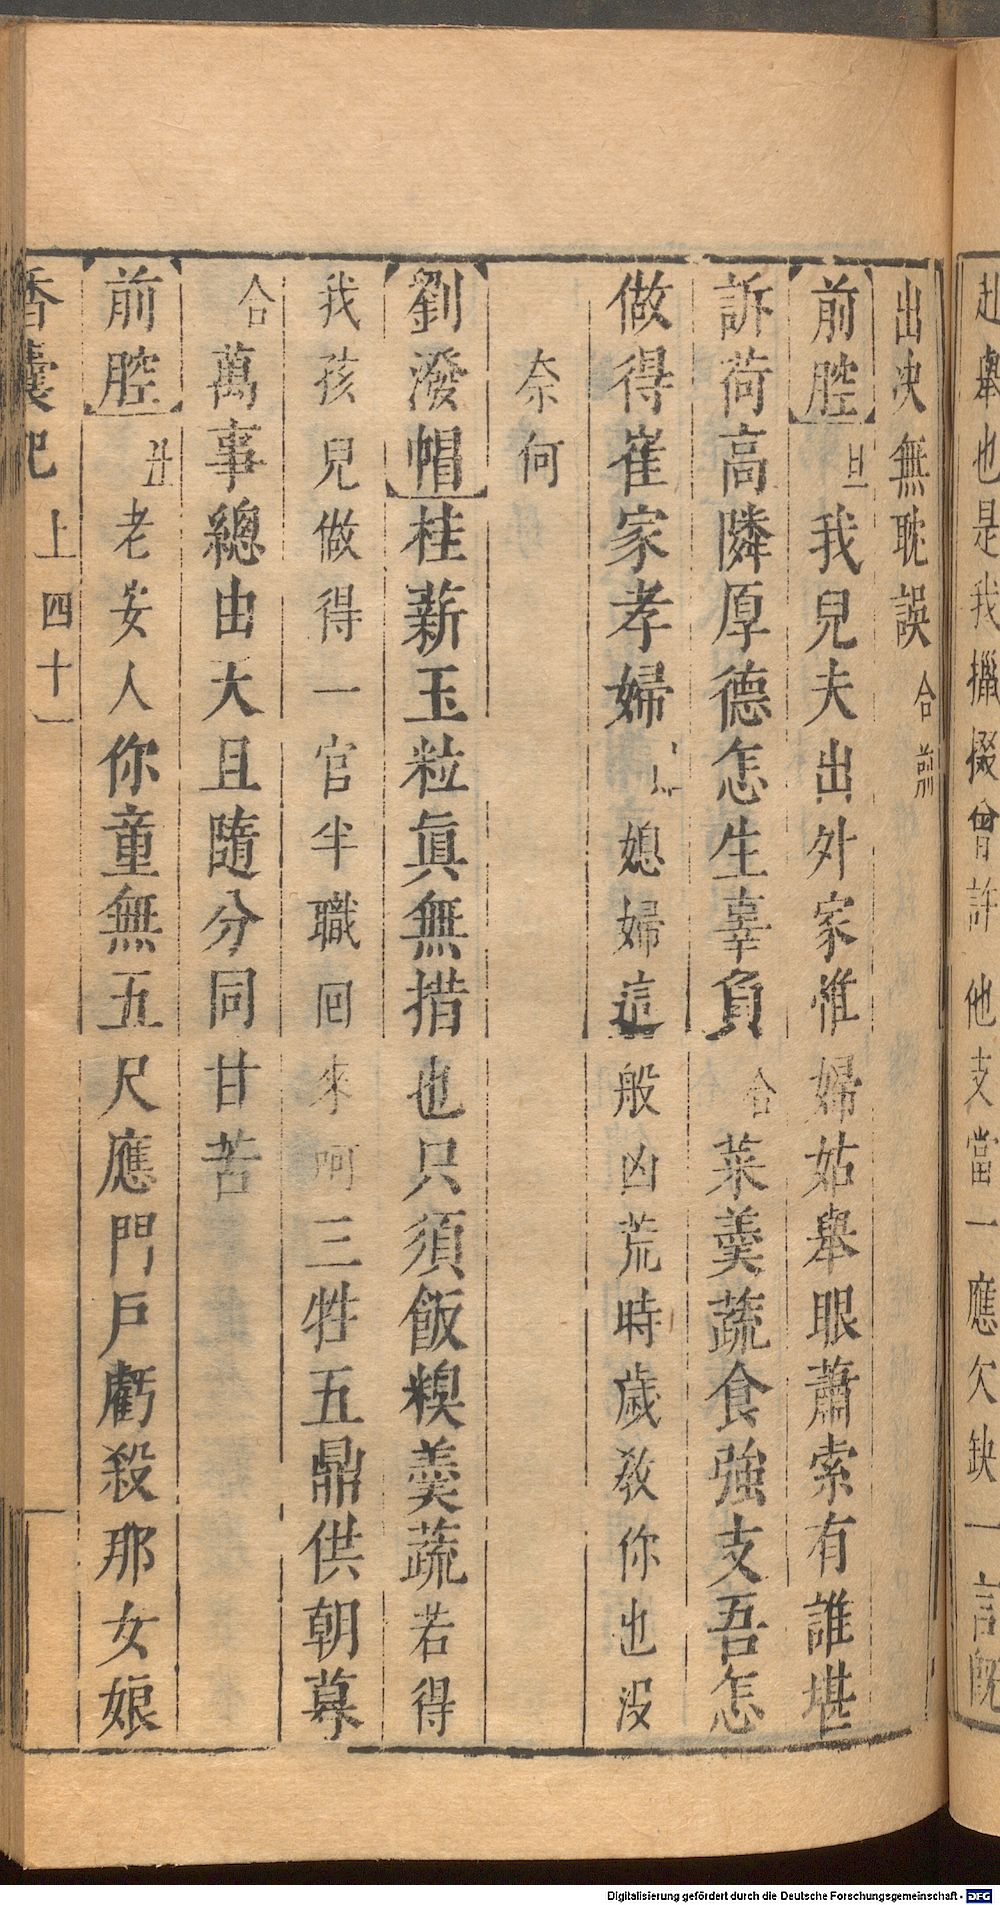 赴舉也是我攛掇曾許他支當一應欠缺一言既
出决無耽誤合前
前腔旦我兒夫出外家惟婦姑舉眼蕭索有誰堪
訴荷高隣厚德怎生辜負合菜羹蔬食強支吾怎
做得崔家孝婦 媳婦這般凶荒時歲教你也沒
奈何
劉潑帽桂薪玉粒眞無措也只須飯糗羹蔬若得
我孩兒做得一官半職回來呵三牲五鼎供朝暮
合萬事總由大且隨分同甘苦
前腔丑老安人你童無五尺應門戶虧殺那女娘
香囊記 上 四十一
Digitalisierung gefördert durch die Deutsche Forschungsgemeinschaft - DFG